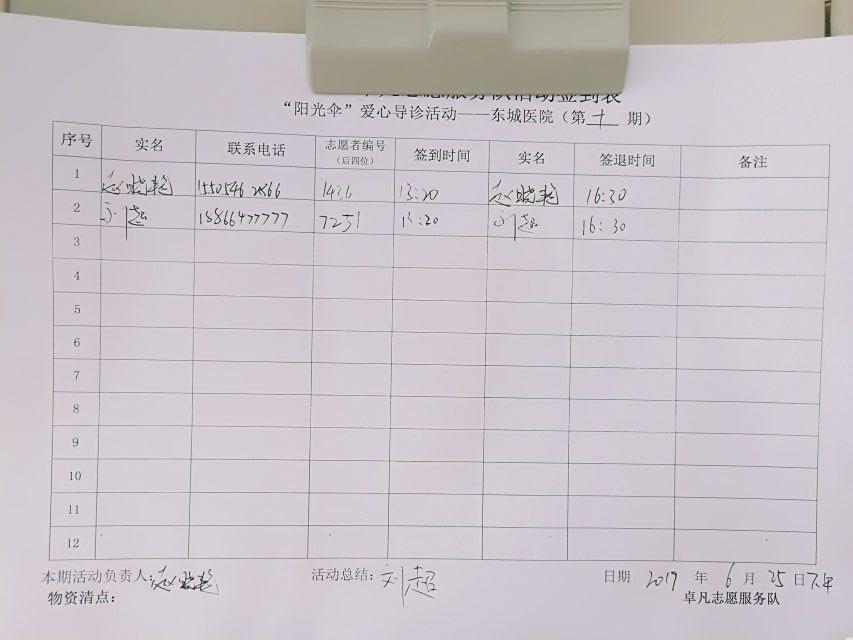 服务队活动签到表
“阳光伞”爱心导诊活动——东城医院（第 十 期）
序号 实名 联系电话 志愿者编号（后四位） 签到时间 实名 签退时间 备注
1 赵晓艳 15505462866 1436 13:20 赵晓艳 16:30
2 刘超 15866477777 7251 13:20 刘超 16:30
3
4
5
6
7
8
9
10
11
12
本期活动负责人：赵晓艳 活动总结：刘超 日期 2019 年 6 月 25 日下午
物资清点： 卓凡志愿服务队